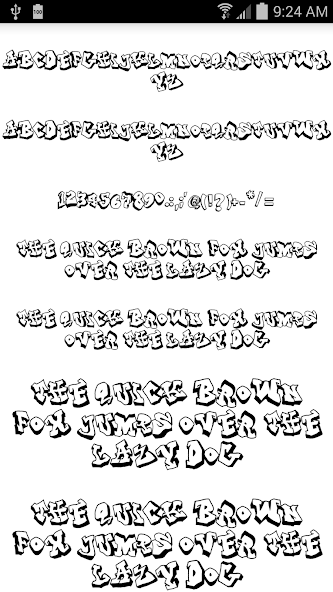 100 9:24 AM
ABCDEFGHIJKLMNOPQRSTUVWX
YZ
ABCDEFGHIJKLMNOPQRSTUVWX
YZ
1234567890.:,;'@(!?)+-*/=
THE QUICK BROWN FOX JUMPS
OVER THE LAZY DOG
THE QUICK BROWN FOX JUMPS
OVER THE LAZY DOG
THE QUICK BROWN
FOX JUMPS OVER THE
LAZY DOG
THE QUICK BROWN
FOX JUMPS OVER THE
LAZY DOG